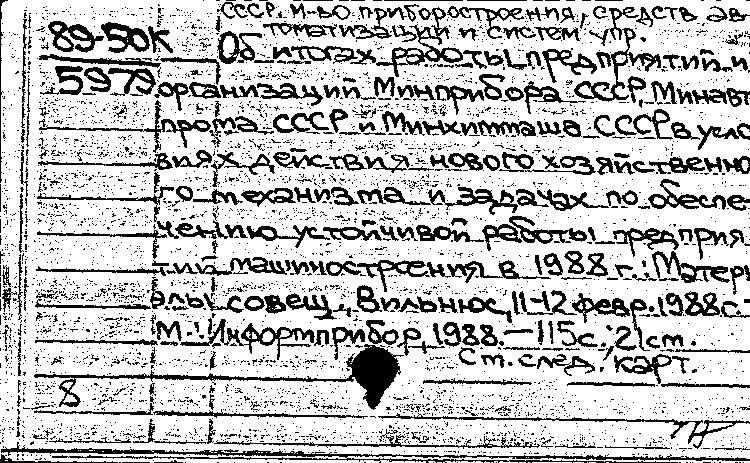 СССР. М-во приборостроения, средств ав-
томатизации и систем упр.
89-50К
5979
Об итогах работы предприятий и
организаций Минприбора СССР, Минавто
прома СССР и Минхиммаша СССР в усло
виях действия нового хозяйственно
го механизма и задачах по обеспе-
чению устойчивой работы предприя
тий машиностроения в 1988 г.: Матери
алы совещ., Вильнюс, 11-12 февр. 1988г.-
М.: Информприбор, 1988.-115с.; 21см.
См. след. карт.
8